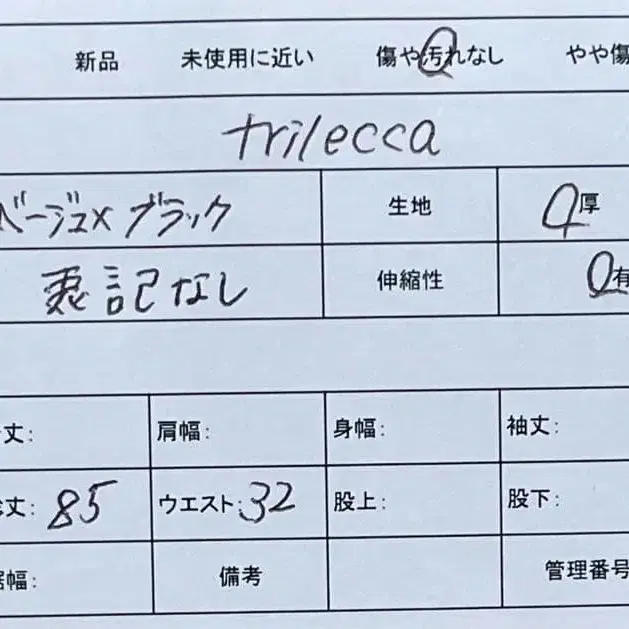 新品 未使用に近い 傷や汚れなし やや傷
trilecca
ベージュ×ブラック 生地 厚
表記なし 伸縮性 有
丈: 肩幅: 身幅: 袖丈:
総丈: 85 ウエスト: 32 股上: 股下:
裾幅: 備考 管理番号